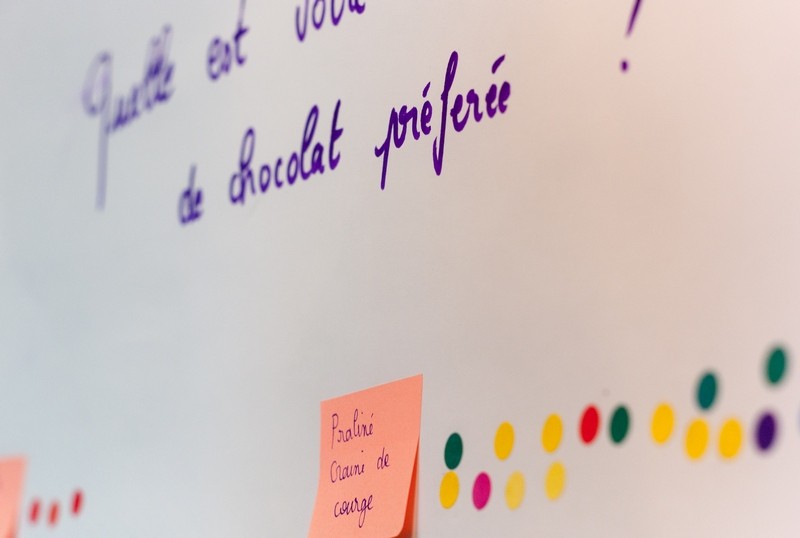 Quelle est votre
de chocolat préferée
!
Praliné
Craini de
courge